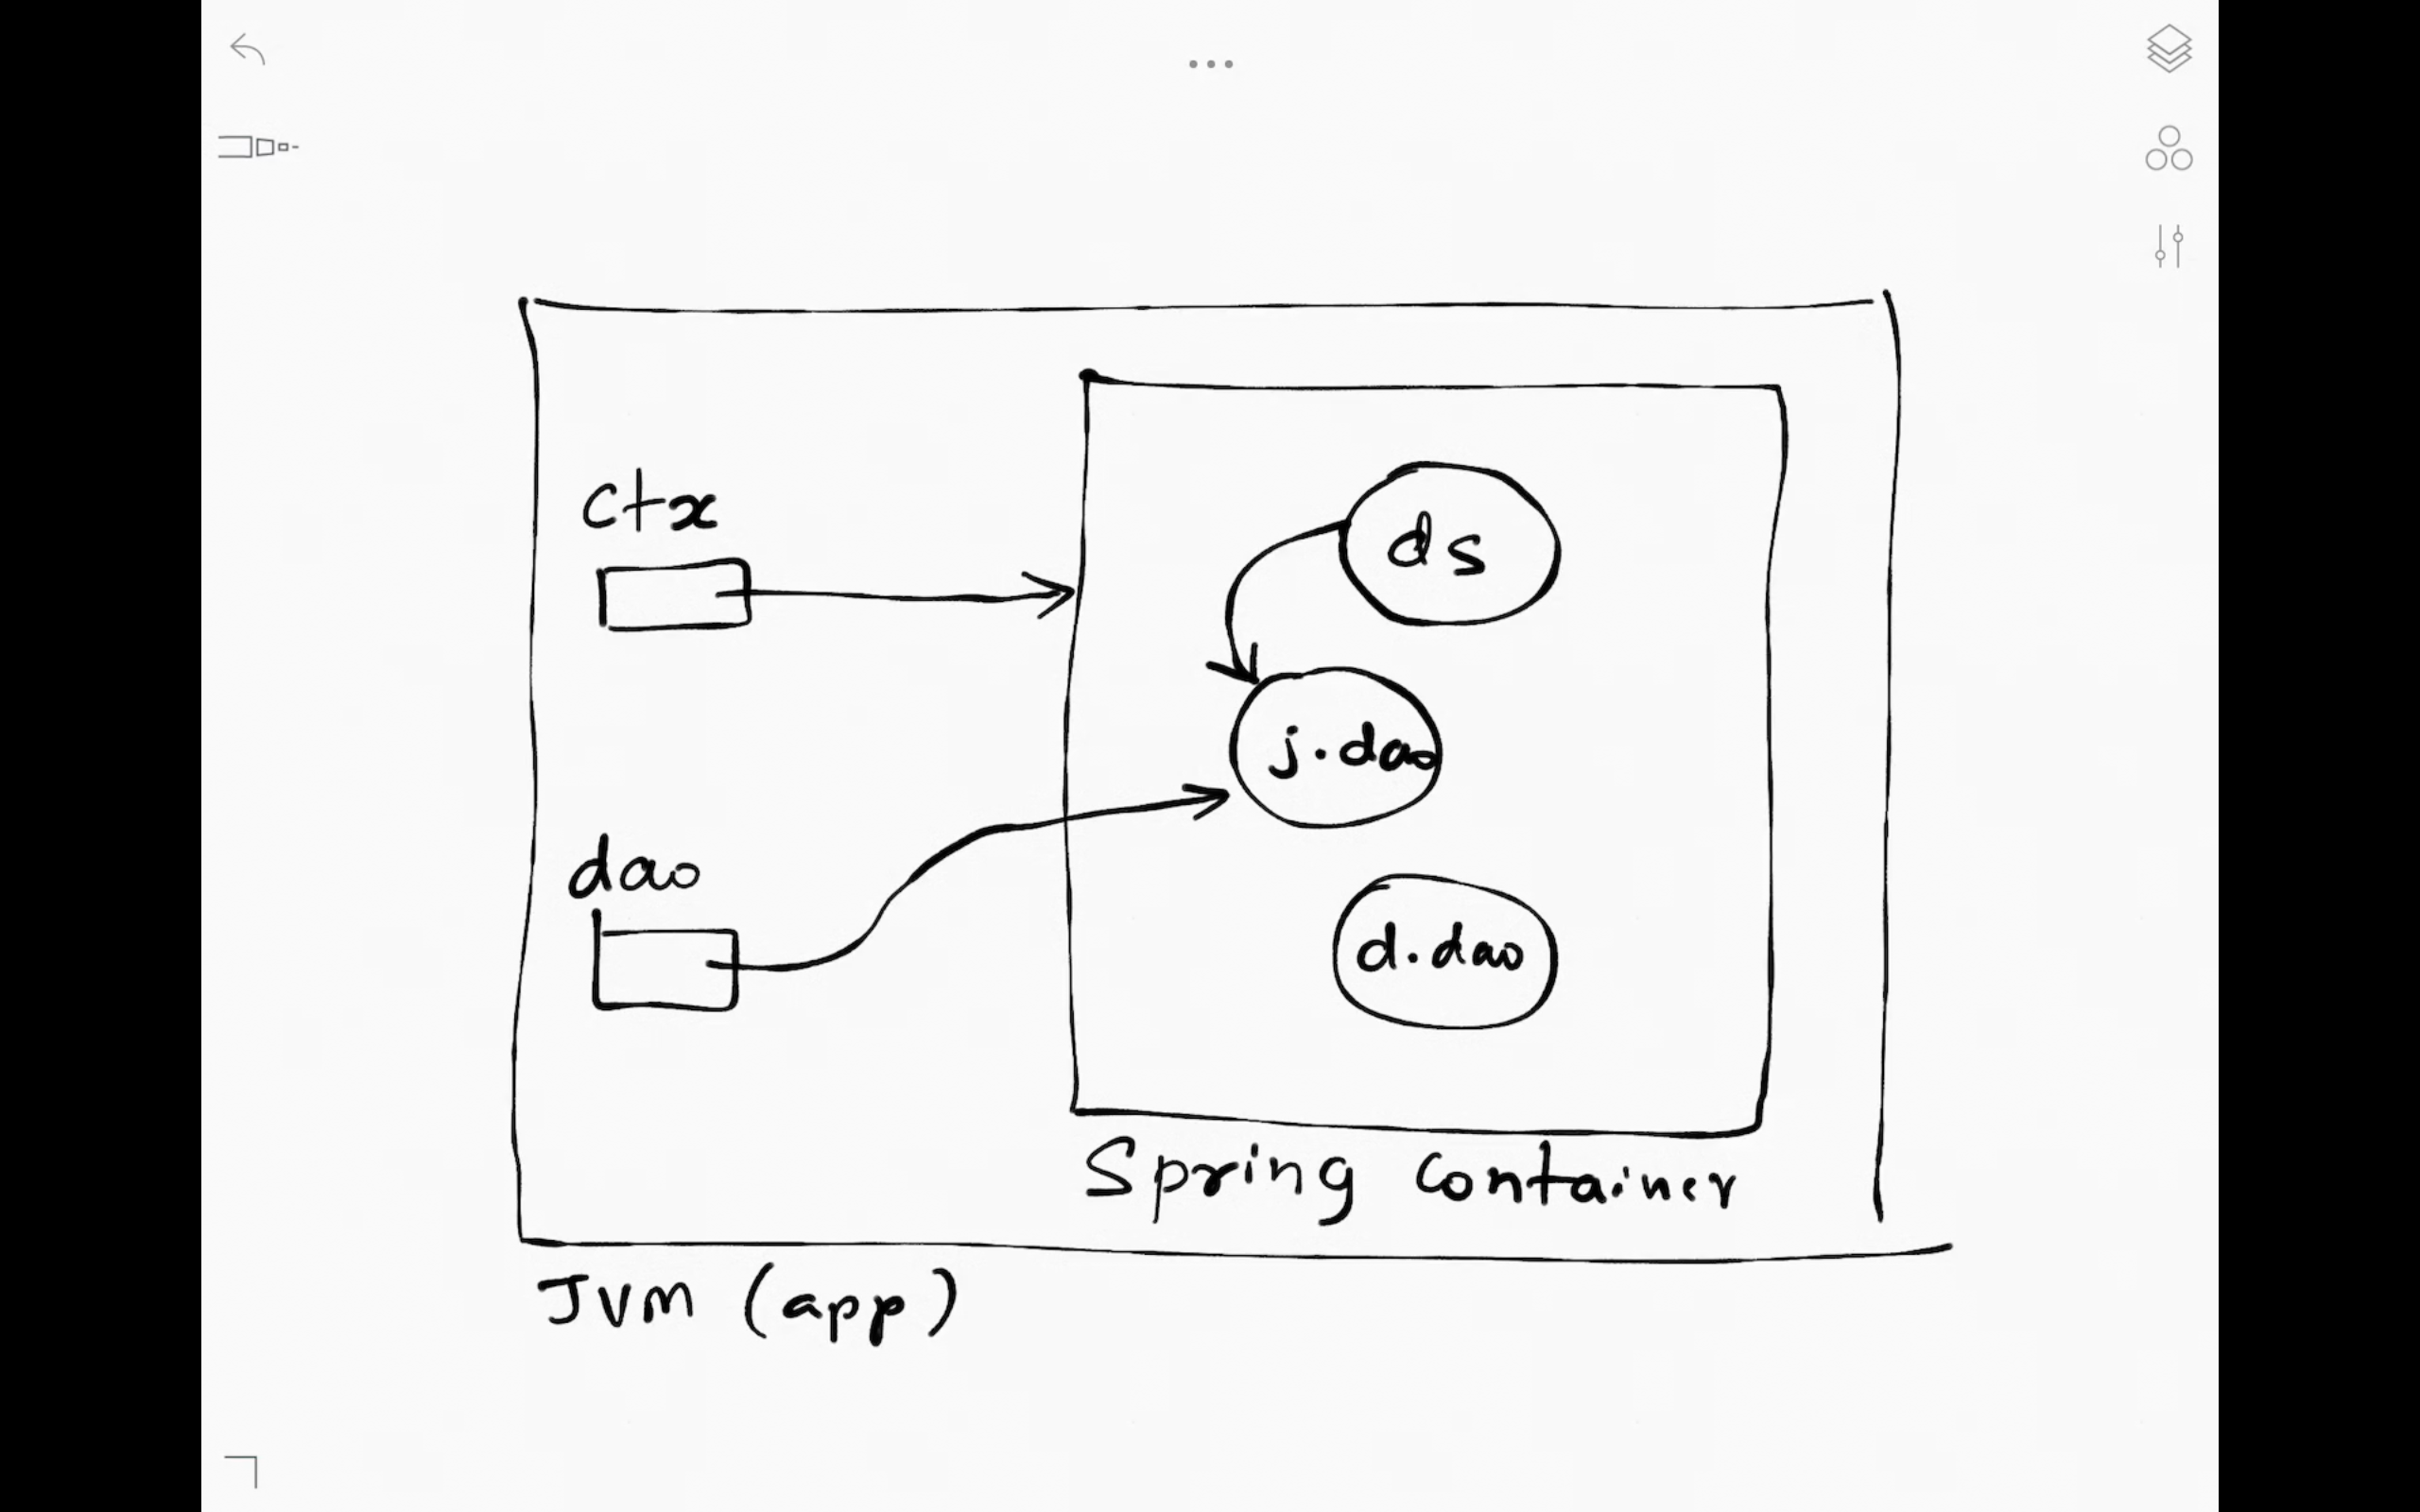 ctx
ds
j.dao
dao
d.dao
Spring Container
JVM (app)